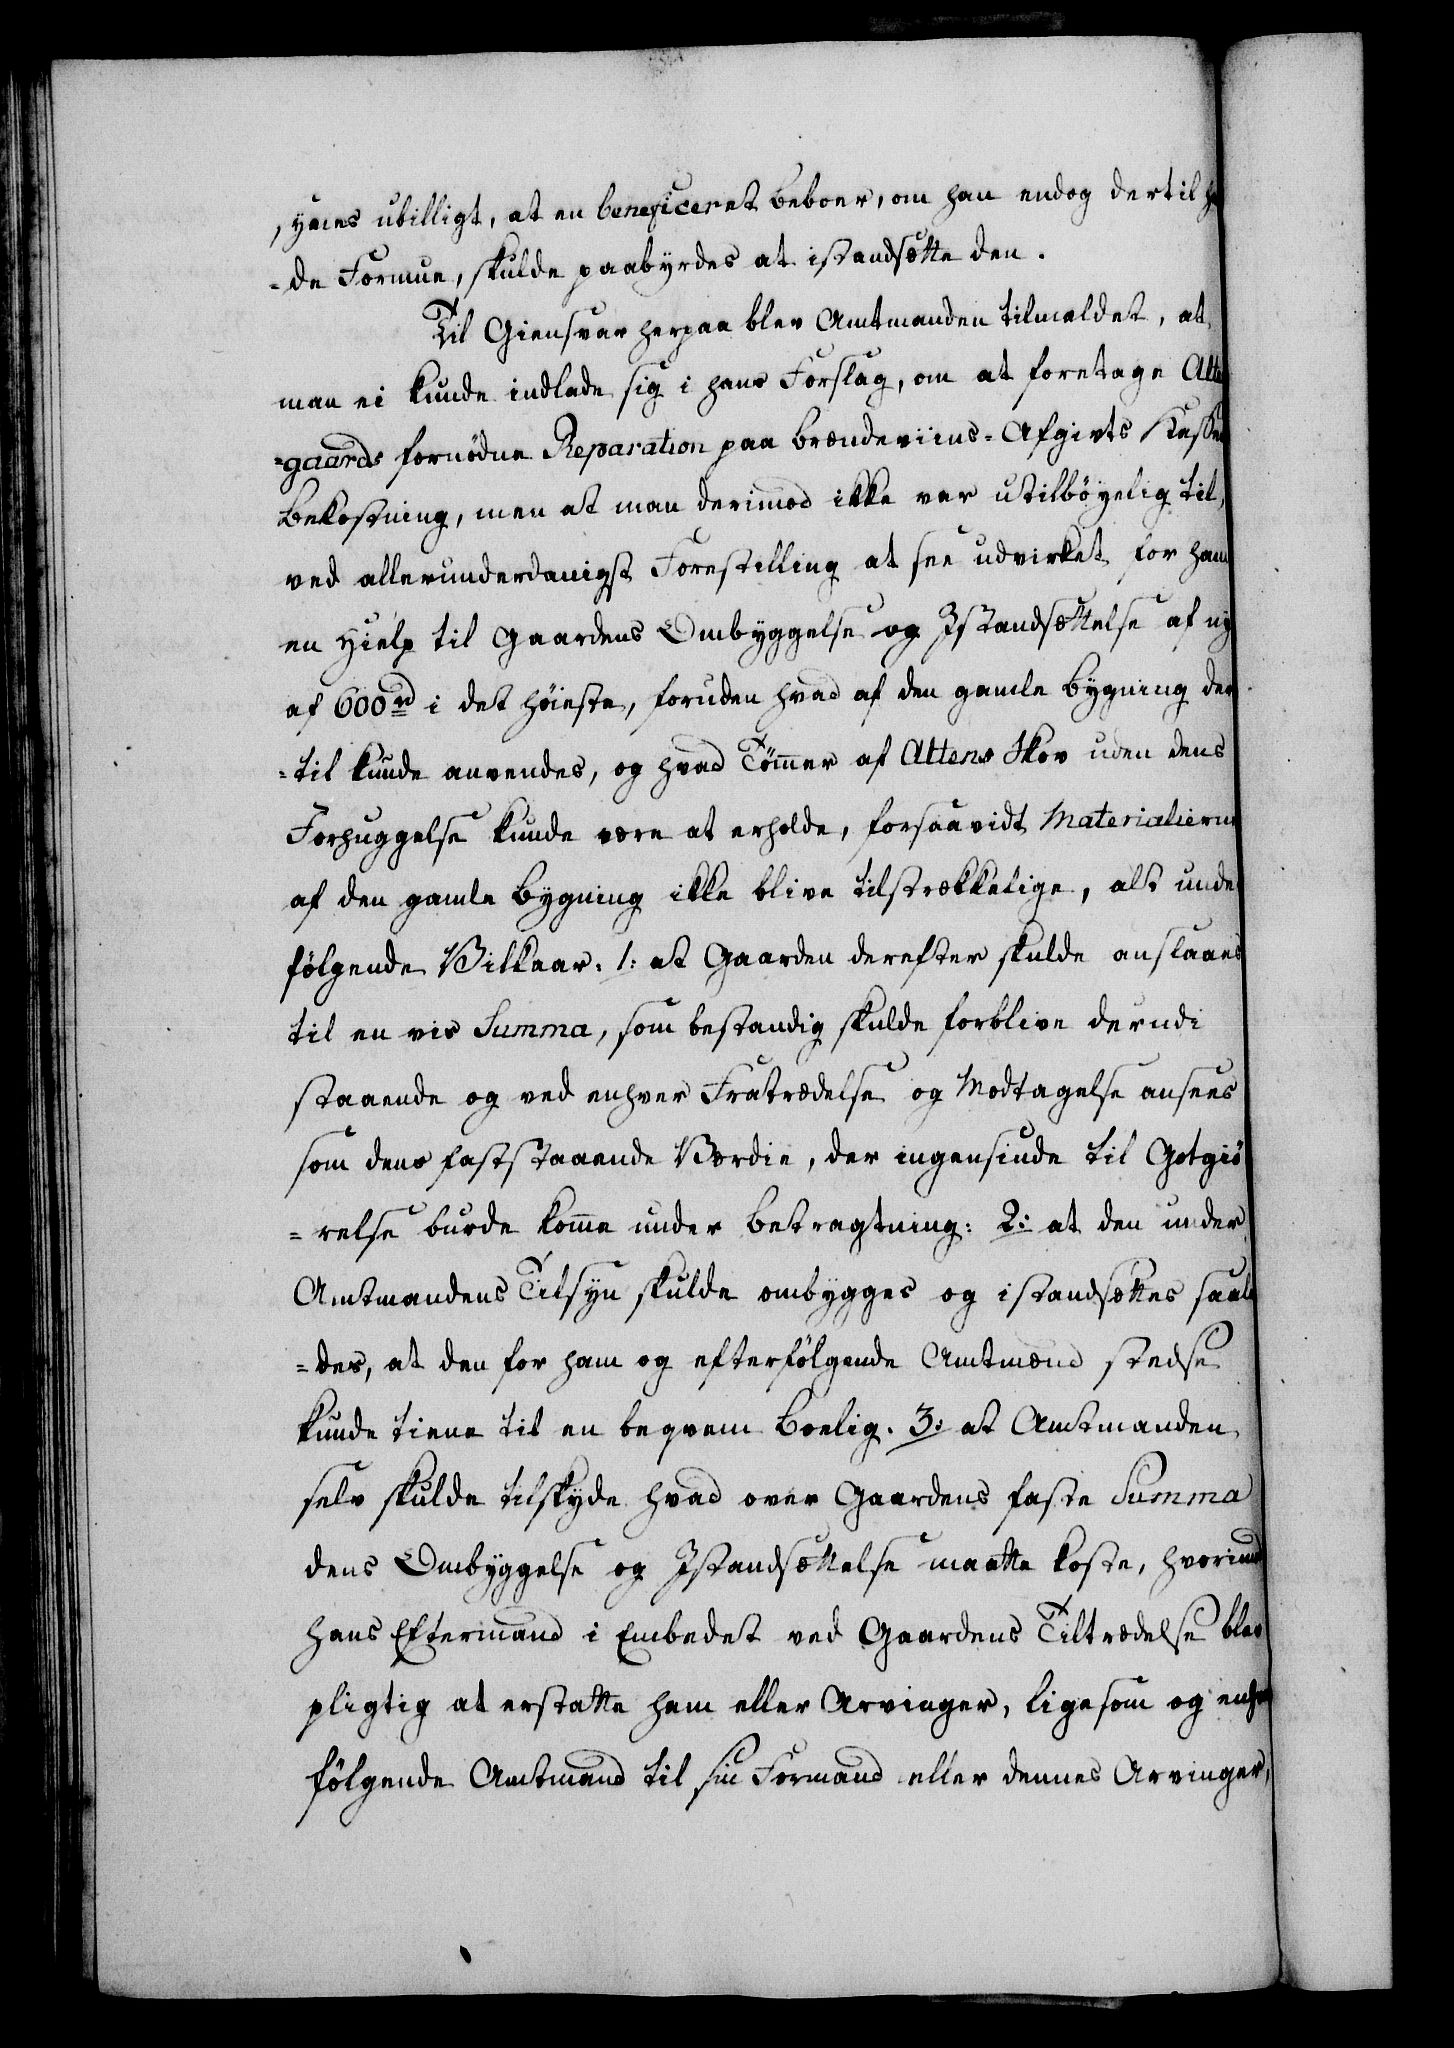 synes ubilligt, at en beneficeret Beboer, om han endog dertil ha
-de Formue, skulde paabyrdes at istandsætte den.
Til Giensvar herpaa blev Amtmanden tilmeldet, at
man ei kunde indlade sig i hans Forslag, om at foretage Alte
-gaards fornødne Reparation paa Brændeviins-Afgivts Kassens
Bekostning, men at man derimod ikke var utilbøyelig til,
ved allerunderdanigst Forestilling at see udvirket for ham
en Hielp til Gaardens Ombyggelse og Istandsættelse af ny
af 600 rd i det høieste, foruden hvad af den gamle Bygning der
-til kunde anvendes, og hvad Tømer af Altens Skov uden dens
Forhuggelse kunde være at erholde, forsaavidt Materialierne
af den gamle Bygning ikke blive tilstrækkelige, alt under
følgende Vilkaar. 1: at Gaarden derefter skulde anslaaes
til en vis Summa, som bestandig skulde forblive derudi
staaende og ved enhver Fratrædelse og Modtagelse ansees
som dens faststaaende Værdie, der ingensinde til Gotgiö
-relse burde kome under Betragtning: 2: at den under
Amtmandens Tilsyn skulde ombygges og istandsættes saale
-des, at den for ham og efterfølgende Amtmænd stedse
kunde tiene til en beqvem Boelig. 3: at Amtmanden
selv skulde tilskyde hvad over Gaardens faste Summa
dens Ombyggelse og Istandsættelse maatte koste, hvorimod
hans Eftermand i Embedet ved Gaardens Tiltrædelse blev
pligtig at erstatte ham eller Arvinger, ligesom og enhver
følgende Amtmand til sin Formand eller dennes Arvinger,